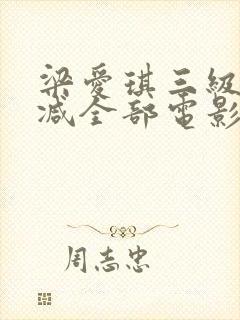 梁愛琪三級
减全部電影
周志忠